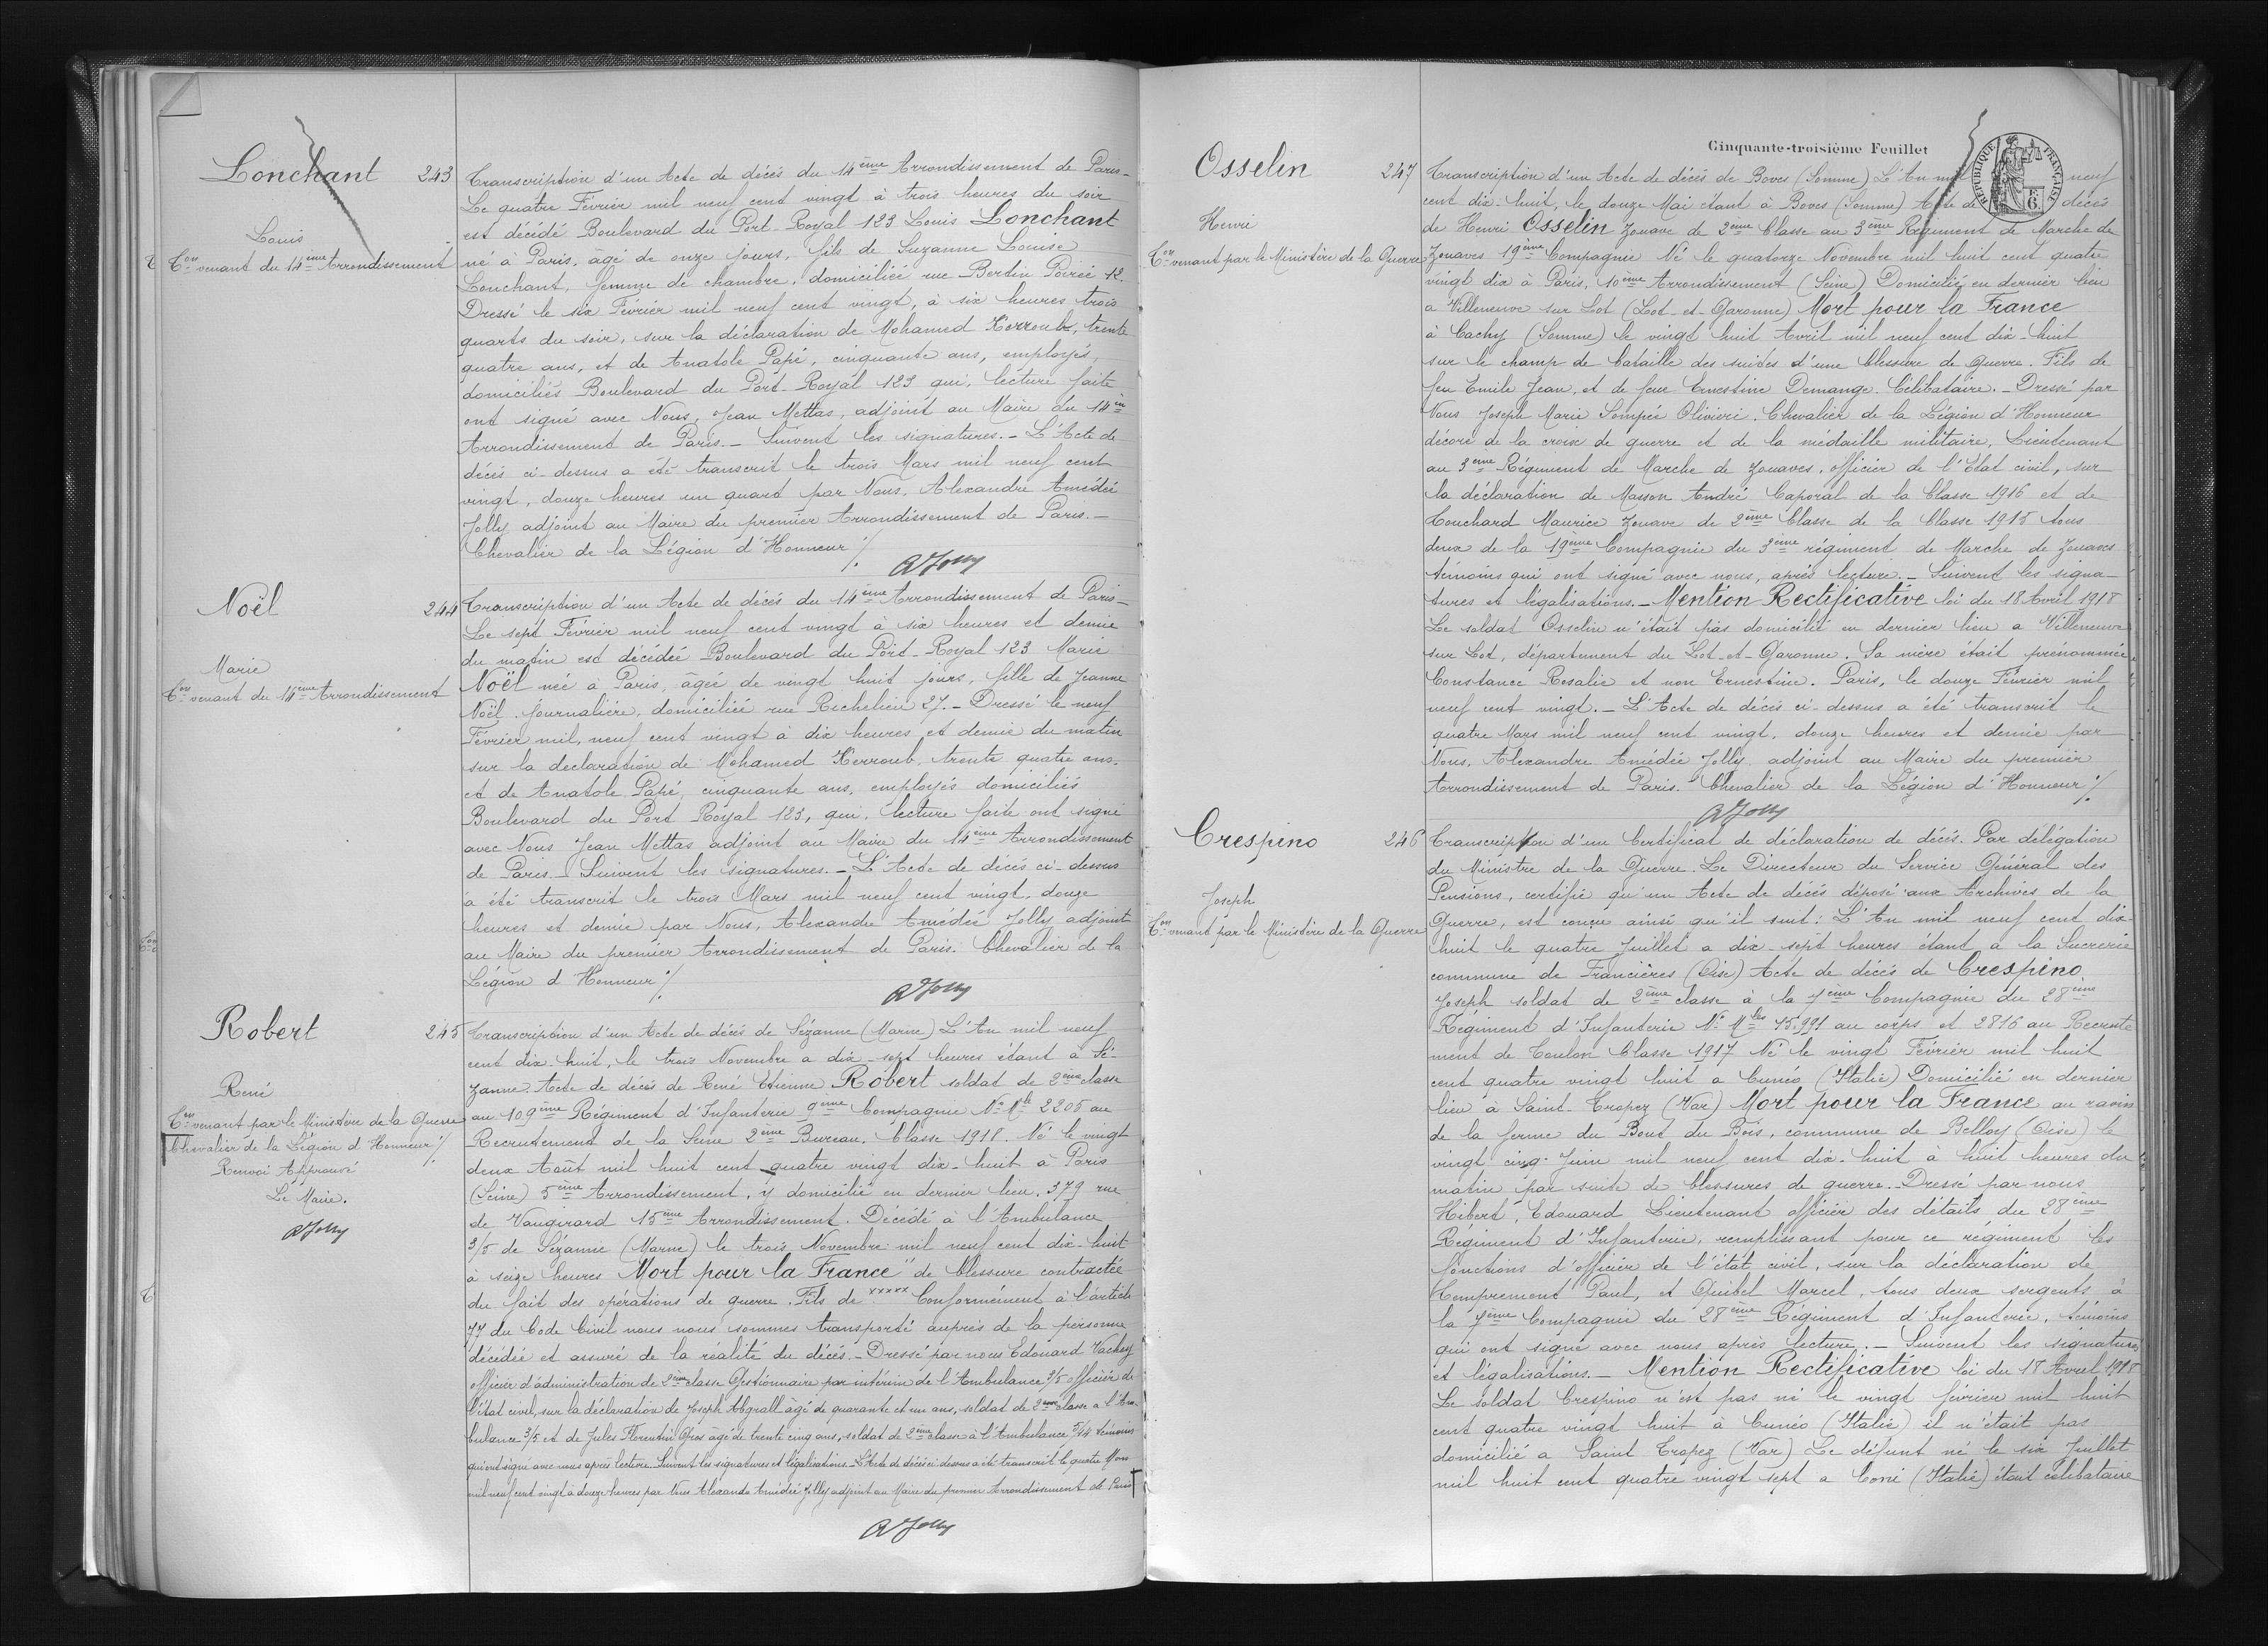 Lonchant 243
Louis
Con venant du 14ème Arrondissement
Transcription d'un Acte de décès du 14ème Arrondissement de Paris -
Le quatre Février mil neuf cent vingt à trois heures du soir
est décédé Boulevard du Port-Royal 123 Louis Lonchant
né à Paris, âgé de onze jours, fils de Suzanne Louise
Lonchant, femme de chambre, domiciliée rue Bertin Poirée 12.
Dressé le six Février mil neuf cent vingt, à six heures trois
quarts du soir, sur la déclaration de Mohamed Kerroub, trente
quatre ans, et de Anatole Papé, cinquante ans, employés,
domiciliés Boulevard du Port-Royal 123 qui, lecture faite
ont signé avec Nous, Jean Mettas, adjoint au Maire du 14èm
Arrondissement de Paris. - Suivent les signatures. - L'Acte de
décès ci-dessus a été transcrit le trois Mars mil neuf cent
vingt, douze heures un quart par Nous, Alexandre Amédée
Jolly adjoint au Maire du premier Arrondissement de Paris. -
Chevalier de la Légion d'Honneur ./.
AJolly
Noël 244
Marie
Con venant du 14ème Arrondissement
Transcription d'un Acte de décès du 14ème Arrondissement de Paris -
Le sept Février mil neuf cent vingt à six heures et demie
du matin est décédée Boulevard du Port-Royal 123 Marie
Noël née à Paris, âgée de vingt huit jours, fille de Jeanne
Noël, journalière, domiciliée rue Richelieu 27. - Dressé le neuf
Février mil neuf cent vingt à dix heures et demie du matin
sur la declaration de Mohamed Kerroub, trente quatre ans.
et de Anatole Papé, cinquante ans, employés domiciliés
Boulevard du Port Royal 123, qui, lecture faite ont signé
avec Nous Jean Mettas adjoint au Maire du 14ème Arrondissement
de Paris. - Suivent les signatures. - L'Acte de décès ci-dessus
à été transcrit le trois Mars mil neuf cent vingt, douze
heures et demie par Nous, Alexandre Amédée Jolly adjoint
au Maire du premier Arrondissement de Paris. Chevalier de la
Légion d'Honneur ./.
AJolly
Robert 245
René
Con venant par le Ministère de la Guerre
Chevalier de la Légion d'Honneur ./.
Renvoi Approuvé
Le Maire.
AJolly
Transcription d'un Acte de décès de Sézanne (Marne) L'An mil neuf
cent dix huit, le trois Novembre a dix-sept heures étant à Sé-
zanne. Acte de décès de René Etienne Robert soldat de 2ème classe
au 109ème Régiment d'Infanterie 9ème Compagnie No Mle 2205 au
Recrutement de la Seine 2ème Bureau. Classe 1918. Né le vingt
deux Août mil huit cent quatre vingt dix-huit à Paris
(Seine) 5ème Arrondissement, y domicilié en dernier lieu, 379 rue
de Vaugirard 15ème Arrondissement. Décédé à l'Ambulance
3/5 de Sézanne (Marne) le trois Novembre mil neuf cent dix-huit
à seize heures Mort pour la France" de blessure contractée
du fait des opérations de guerre. Fils de xxxxx Conformément à l'article
77 du Code Civil nous nous sommes transporté auprès de la personne
décédée et assuré de la réalité du décès. - Dressé par nous Edouard Vachey
officier d'administration de 2ème classe Gestionnaire par intérim de l'Ambulance 3/5 officier de
l'état civil, sur la déclaration de Joseph Abgrall âgé de quarante et un ans, soldat de 2ème classe à l'Am-
bulance 3/5 et de Jules Florentin Gros âgé de trente cinq ans, soldat de 2ème classe à l'Ambulance 5/14 témoins
qui ont signé avec nous après lecture. Suivent les signatures et légalisations. - L'Acte de décès ci dessus a été transcrit le quatre Mars
mil neuf cent vingt à douze heures par Nous Alexandre Amédée Jolly adjoint au Maire du premier Arrondissement de Paris
AJolly
Cinquante-troisième Feuillet
RÉPUBLIQUE FRANÇAISE
F.
6.
Osselin 247
Henri
Con venant par le Ministère de la Guerre
Transcription d'un Acte de décès de Boves (Somme) L'An mil neuf
cent dix-huit, le douze Mai étant à Boves (Somme) Acte de décès
de Henri Osselin Zouave de 2ème Classe au 3ème Régiment de Marche de
Zouaves 19ème Compagnie Né le quatorze Novembre mil huit cent quatre
vingt dix à Paris, 10ème Arrondissement (Seine) Domicilié en dernier lieu
a Villeneuve sur Lot (Lot-et-Garonne) Mort pour la France
à Cachy (Somme) le vingt huit Avril mil neuf cent dix-huit
sur le champ de bataille des suites d'une blessure de Guerre. Fils de
feu Emile Jean, et de feue Ernestine Demange. Célibataire. - Dressé par
Nous Joseph Marie Pompée Olivieri. Chevalier de la Légion d'Honneur
décoré de la croix de guerre et de la médaille militaire, Lieutenant
au 3ème Régiment de Marche de Zouaves, officier de l'Etat civil, sur
la déclaration de Masson André Caporal de la Classe 1916 et de
Couchard Maurice Zouave de 2ème Classe de la Classe 1915 tous
deux de la 19ème Compagnie du 3ème régiment de Marche de Zouaves
témoins qui ont signé avec nous, après lecture. - Suivent les signa-
tures et légalisations. - Mention Rectificative loi du 18 Avril 1918
Le soldat Osselin n'était pas domicilié en dernier lieu a Villeneuve
sur Lot, département du Lot-et-Garonne. Sa mère était prénommée
Constance Rosalie et non Ernestine. Paris, le douze Février mil
neuf cent vingt. - L'Acte de décès ci-dessus a été transcrit le
quatre Mars mil neuf cent vingt, douze heures et demie par
Nous, Alexandre Amédée Jolly adjoint au Maire du premier
Arrondissement de Paris. Chevalier de la Légion d'Honneur ./.
AJolly
Crespino 246
Joseph
Con venant par le Ministère de la Guerre
Transcription d'un Certificat de déclaration de décès. Par délégation
du Ministre de la Guerre. Le Directeur du Service Général des
Pensions, certifie qu'un Acte de décès déposé aux Archives de la
Guerre, est conçu ainsi qu'il suit: L'An mil neuf cent dix-
huit le quatre Juillet a dix-sept heures étant à la Sucrerie
commune de Francières (Oise) Acte de décès de Crespino
Joseph soldat de 2ème classe à la 7ème Compagnie du 28ème
Régiment d'Infanterie No Mle 15.991 au corps et 2816 au Recrute
ment de Toulon Classe 1917 Né le vingt Février mil huit
cent quatre vingt huit a Cunéo (Italie) Domicilié en dernier
lieu à Saint-Tropez (Var) Mort pour la France au ravin
de la ferme du Bout du Bois, commune de Belloy (Oise) le
vingt cinq Juin mil neuf cent dix-huit à huit heures du
matin par suite de blessures de guerre. - Dressé par nous
Hibert, Edouard Lieutenant officier des détails du 28ème
Régiment d'Infanterie, remplissant pour ce régiment les
fonctions d'officier de l'état civil, sur la déclaration de
Hemprement Paul, et Quibel Marcel, tous deux sergents à
la 7ème Compagnie du 28ème Régiment d'Infanterie, témoins
qui ont signé avec nous après lecture. - Suivent les signatures
et légalisations. - Mention Rectificative loi du 18 Avril 1918
Le soldat Crespino n'est pas né le vingt février mil huit
cent quatre vingt huit à Cunéo (Italie) il n'était pas
domicilié a Saint Tropez (Var) Le défunt né le six Juillet
mil huit cent quatre vingt sept a Coni (Italie) était célibataire